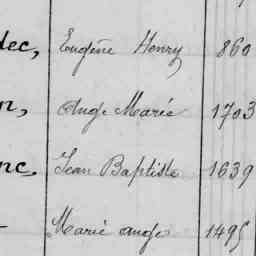 dec, Eugène Henry 860
n, Ange Marie 1703
nc, Jean Baptiste 1639
Marie ange 1495